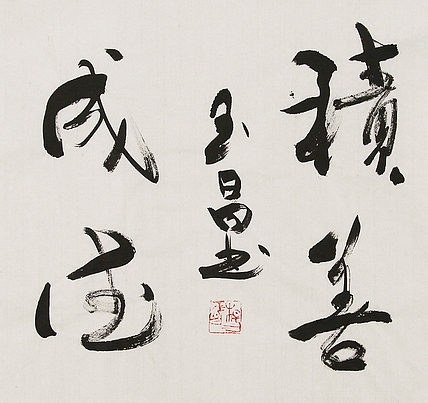 積善
成德